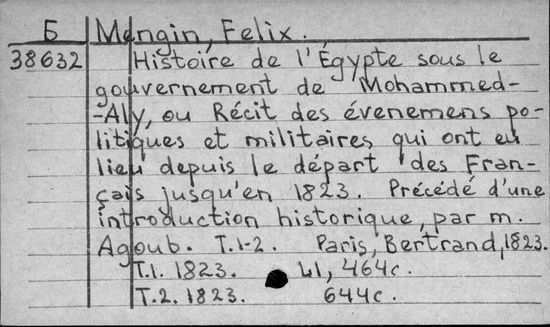 Б Mengin, Felix.
38632 Histoire de l'Égypte sous le
gouvernement de Mohammed-
-Aly, ou Récit des évenemens po-
litiques et militaires qui ont eu
lieu depuis le départ des Fran-
çais jusqu'en 1823. Précédé d'une
introduction historique, par m.
Agoub. T.1-2. Paris, Bertrand, 1823.
T.1. 1823. LI, 464c.
T.2. 1823. 644c.